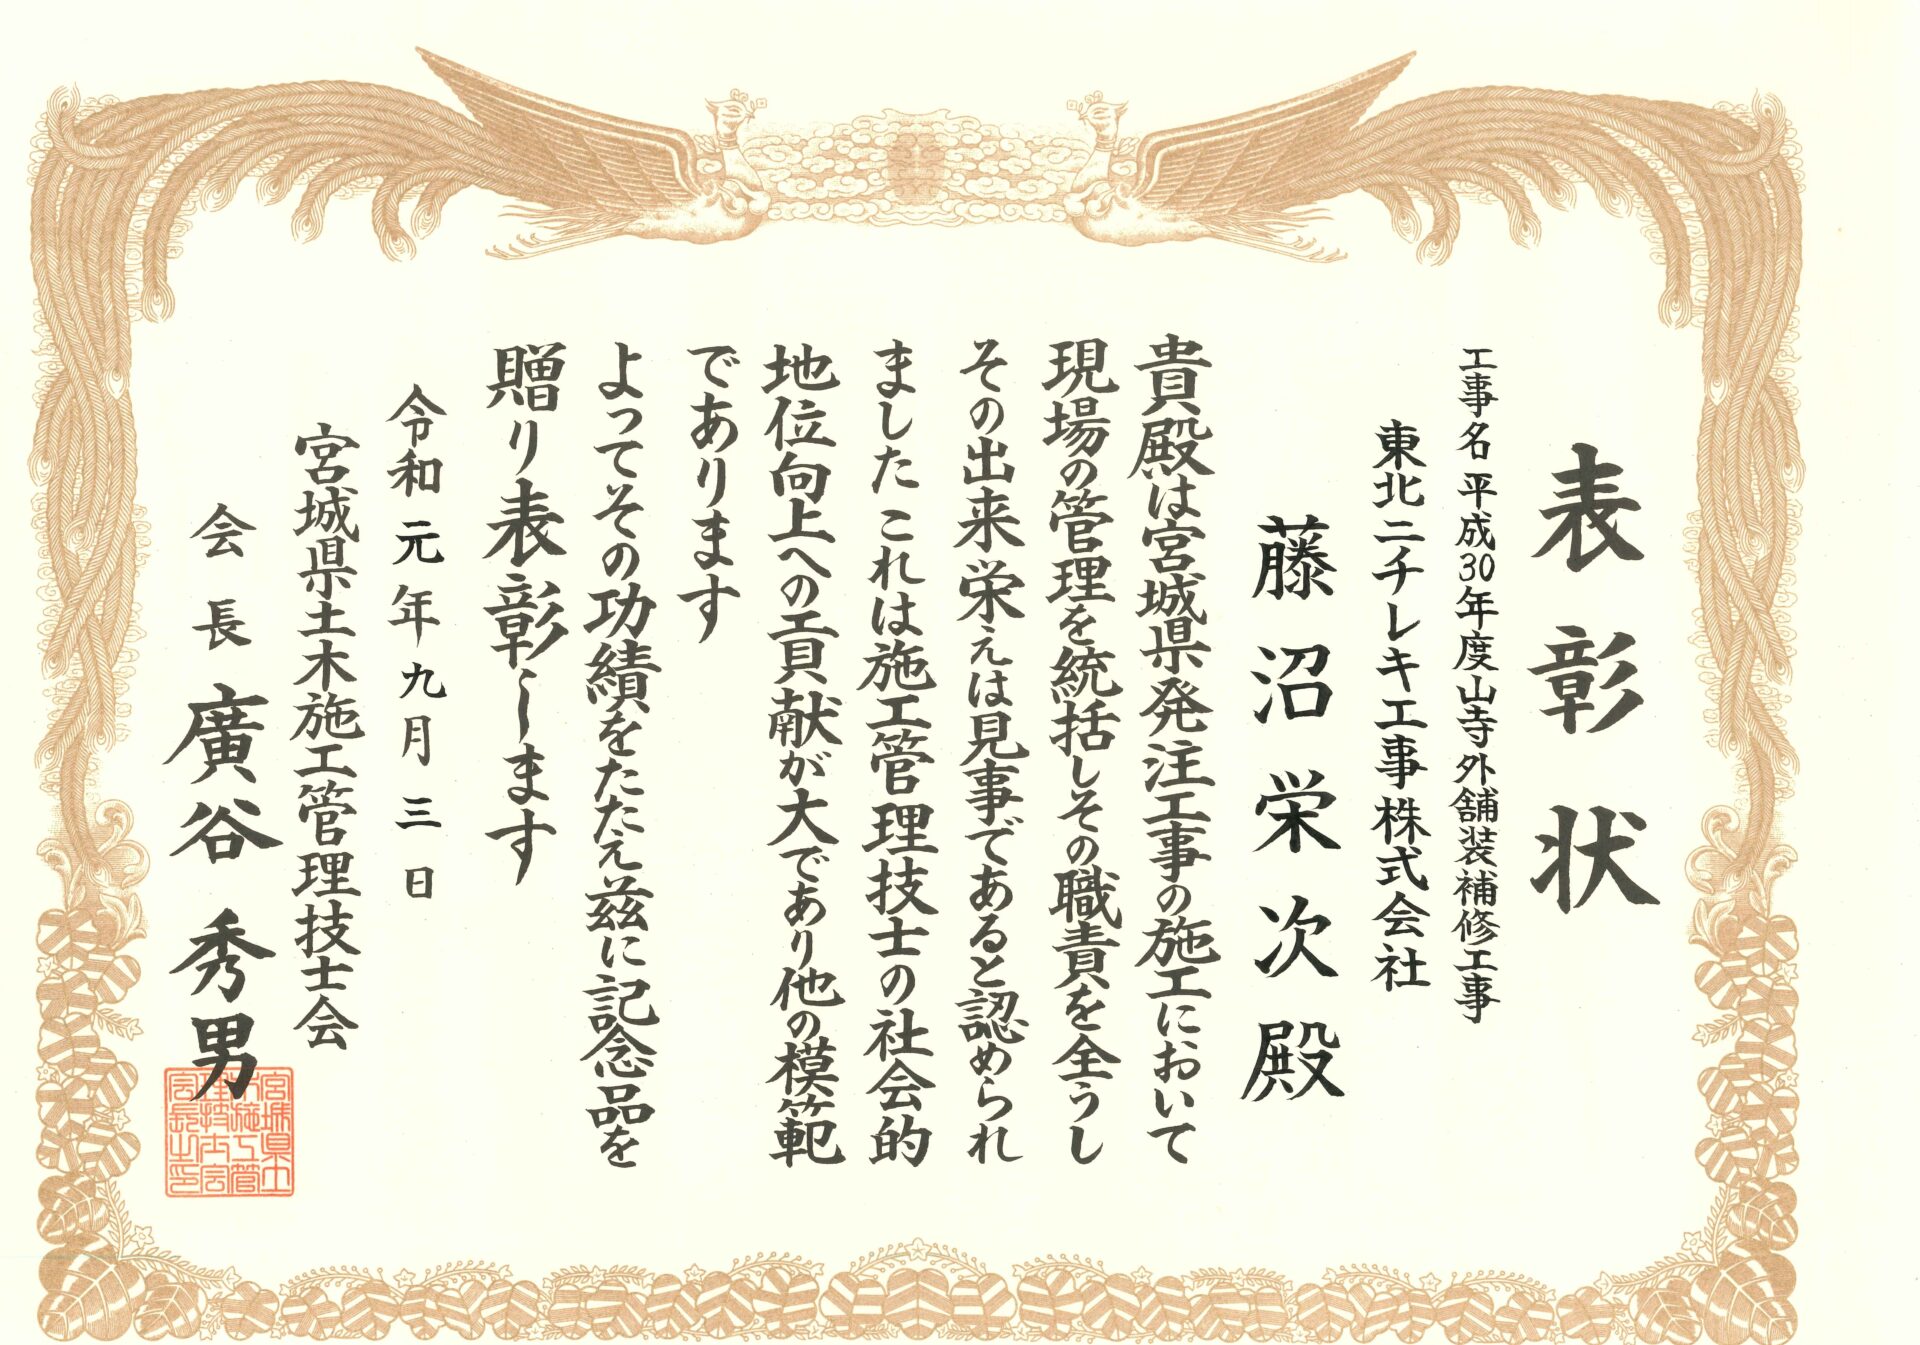 表彰状
工事名 平成30年度山寺外舗装補修工事
東北ニチレキ工事株式会社
藤沼栄次殿
貴殿は宮城県発注工事の施工において
現場の管理を統括しその職責を全うし
その出来栄えは見事であると認められ
ましたこれは施工管理技士の社会的
地位向上への貢献が大であり他の模範
であります
よってその功績をたたえ茲に記念品を
贈り表彰します
令和元年九月三日
宮城県土木施工管理技士会
会長 廣谷秀男
宮城県土
木施工管
理技士会
会長之印